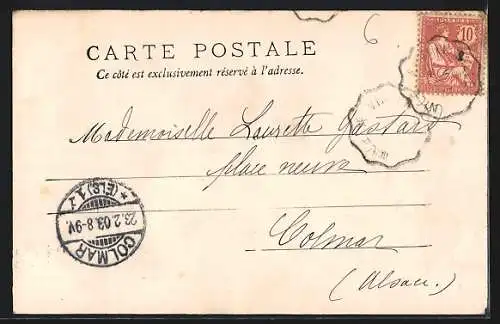 6
10
CARTE POSTALE
Ce côté est exclusivement réservé à l'adresse.
Mademoiselle Laurette Gastard
place neuve
Colmar
(Alsace.)
* (ELS) 1 *
23.2.03.8-9V.
COLMAR